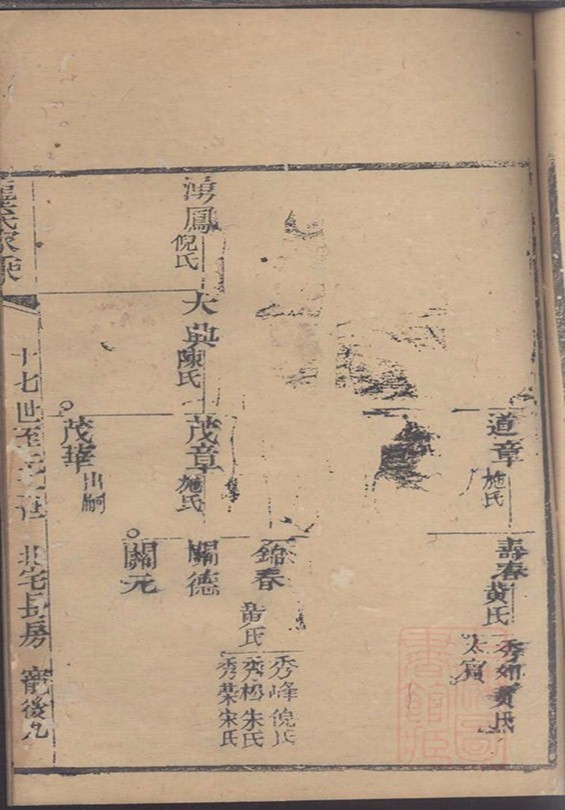 道章 施氏
壽春 黃氏
秀如 黃氏
太寶
錦春 黃氏
秀峰 倪氏
秀松 朱氏
秀葉 宋氏
鳳 倪氏
大興 陳氏
茂章 施氏
關德
關元
茂華 出嗣
氏家乘
十七世至 世 北宅長房 寵後九